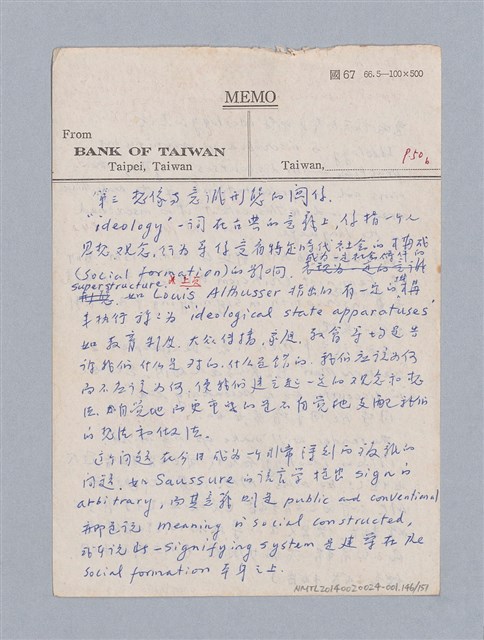 國67 66.5—100×500
MEMO
From
BANK OF TAIWAN
Taipei, Taiwan
Taiwan,
P.50
第三 想像与意識形態的関係.
"ideology" 一词 在古典的意義上, 係指一个人
思想, 观念, 行为 受特定時代社会的構成
(social formation) 的影响.
superstructure. 上层
如 Louis Althusser 指出的, 有一定的
来执行 称之为 "ideological state apparatuses"
如教育制度, 大众传播, 家庭, 教會等均是告
诉我们, 什么是对的, 什么是错的. 我们应该为何
而不应该为何, 使我们建立起一定的观念和想
法, 自觉地 而更重要的是不自觉地支配我们
的想法和做法.
这个问题 在今日成为一个非常得到重視的
问题. 如 Saussure 的语言学指出 sign is
arbitrary, 而其意義则是 public and conventional
那也说 meaning is social constructed,
或者说此一 signifying system 是建築在 the
social formation 本身之上.
NMTL20140020024-001.146/151